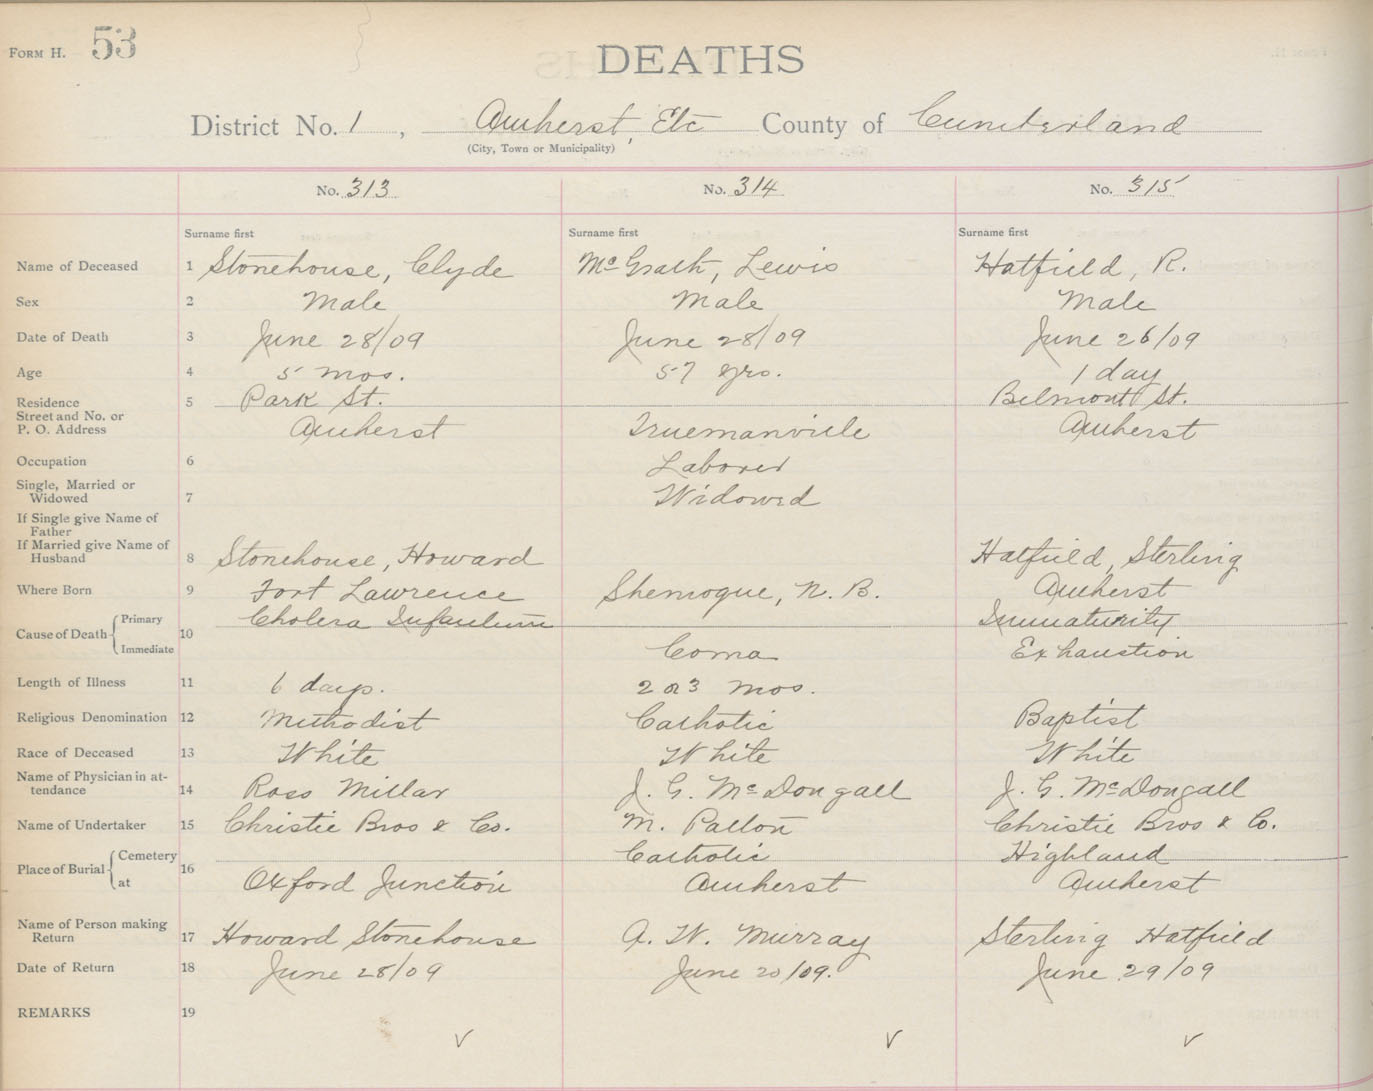 FORM H. 53
DEATHS
District No. 1 , Amherst, Etc County of Cumberland
(City, Town or Municipality)
No. 313 No. 314 No. 315
Surname first Surname first Surname first
Name of Deceased 1 Stonehouse, Clyde McGrath, Lewis Hatfield, R.
Sex 2 Male Male Male
Date of Death 3 June 28/09 June 28/09 June 26/09
Age 4 5 mos. 57 yrs. 1 day
Residence 5 Park St. Belmont St.
Street and No. or
P. O. Address Amherst Truemanville Amherst
Occupation 6 Laborer
Single, Married or
Widowed 7 Widowed
If Single give Name of
Father
If Married give Name of
Husband 8 Stonehouse, Howard Hatfield, Sterling
Where Born 9 Fort Lawrence Shemogue, N. B. Amherst
Cause of Death 10 Primary Cholera Infantum Immaturity
Immediate Coma Exhaustion
Length of Illness 11 6 days. 2 or 3 mos.
Religious Denomination 12 Methodist Catholic Baptist
Race of Deceased 13 White White White
Name of Physician in at-
tendance 14 Ross Millar J. G. McDougall J. G. McDougall
Name of Undertaker 15 Christie Bros & Co. M. Patton Christie Bros & Co.
Place of Burial 16 Cemetery Catholic Highland
at Oxford Junction Amherst Amherst
Name of Person making
Return 17 Howard Stonehouse A. W. Murray Sterling Hatfield
Date of Return 18 June 28/09 June 20/09. June 29/09
REMARKS 19